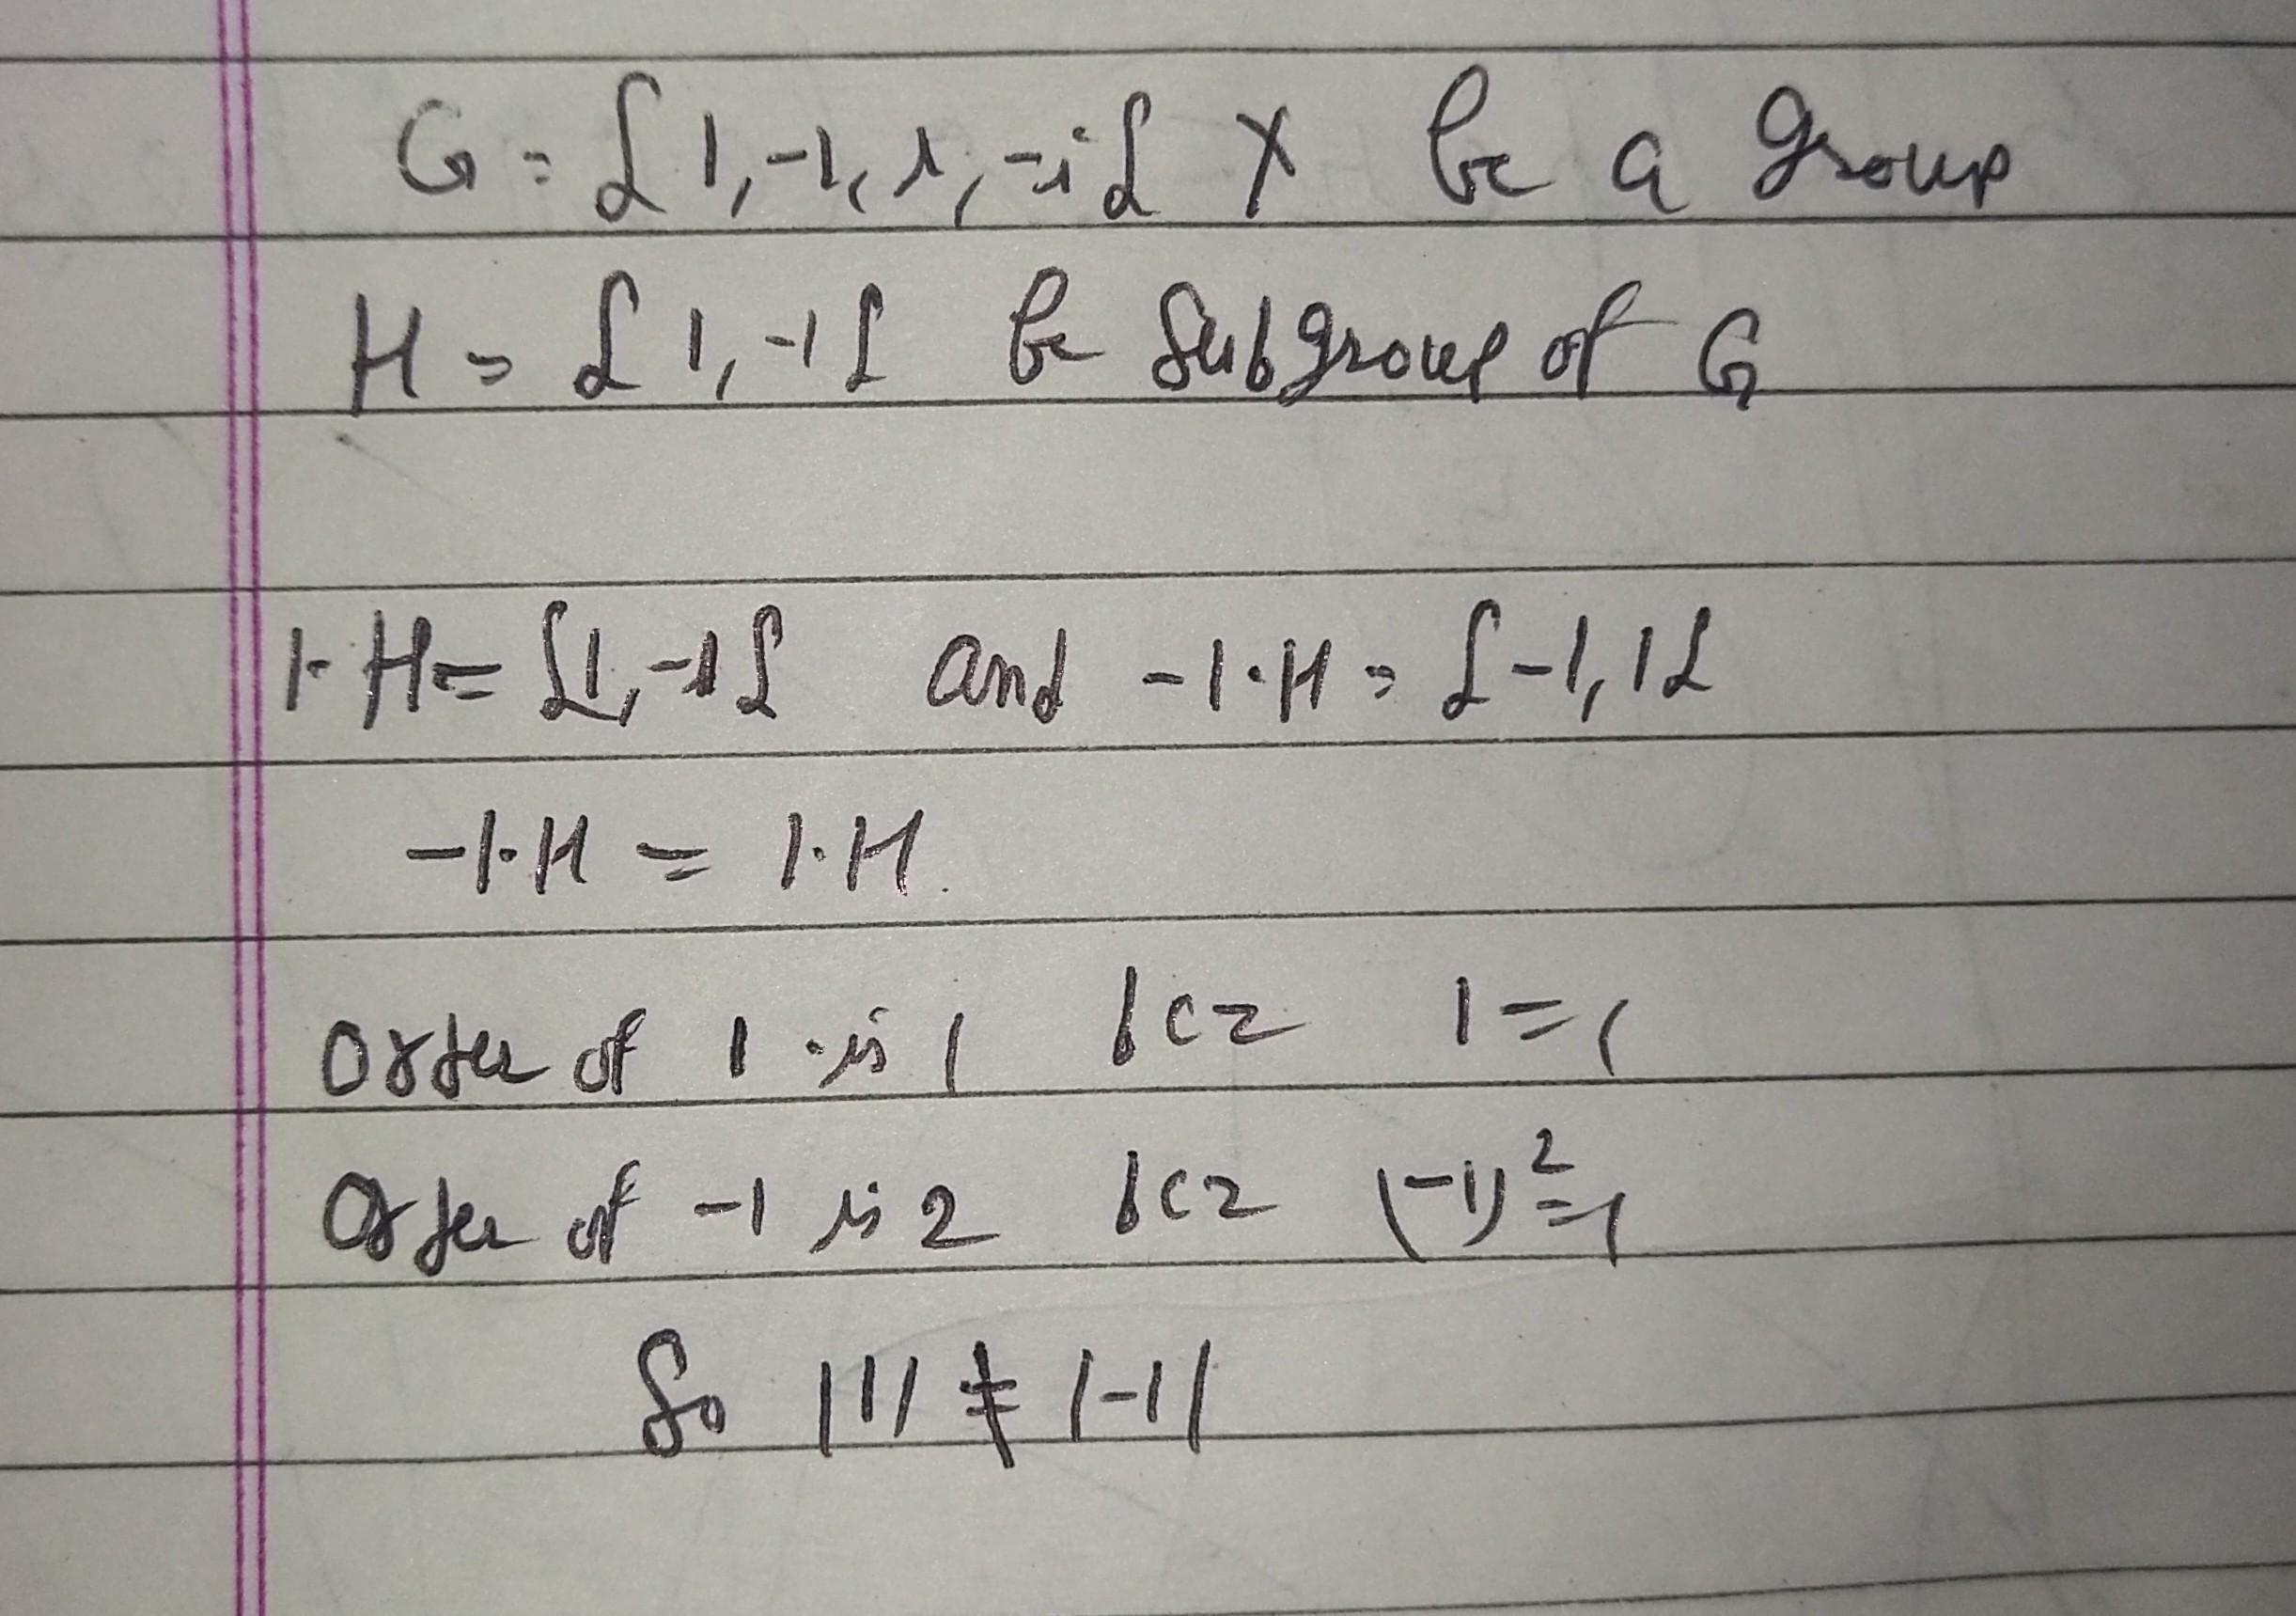 G = { 1, -1, i, -i } X be a group
H = { 1, -1 } be subgroup of G
1·H = { 1, -1 } and -1·H = { -1, 1 }
-1·H = 1·H.
Order of 1 is 1 bcz 1 = 1
Order of -1 is 2 bcz (-1)² = 1
So |1| ≠ |-1|